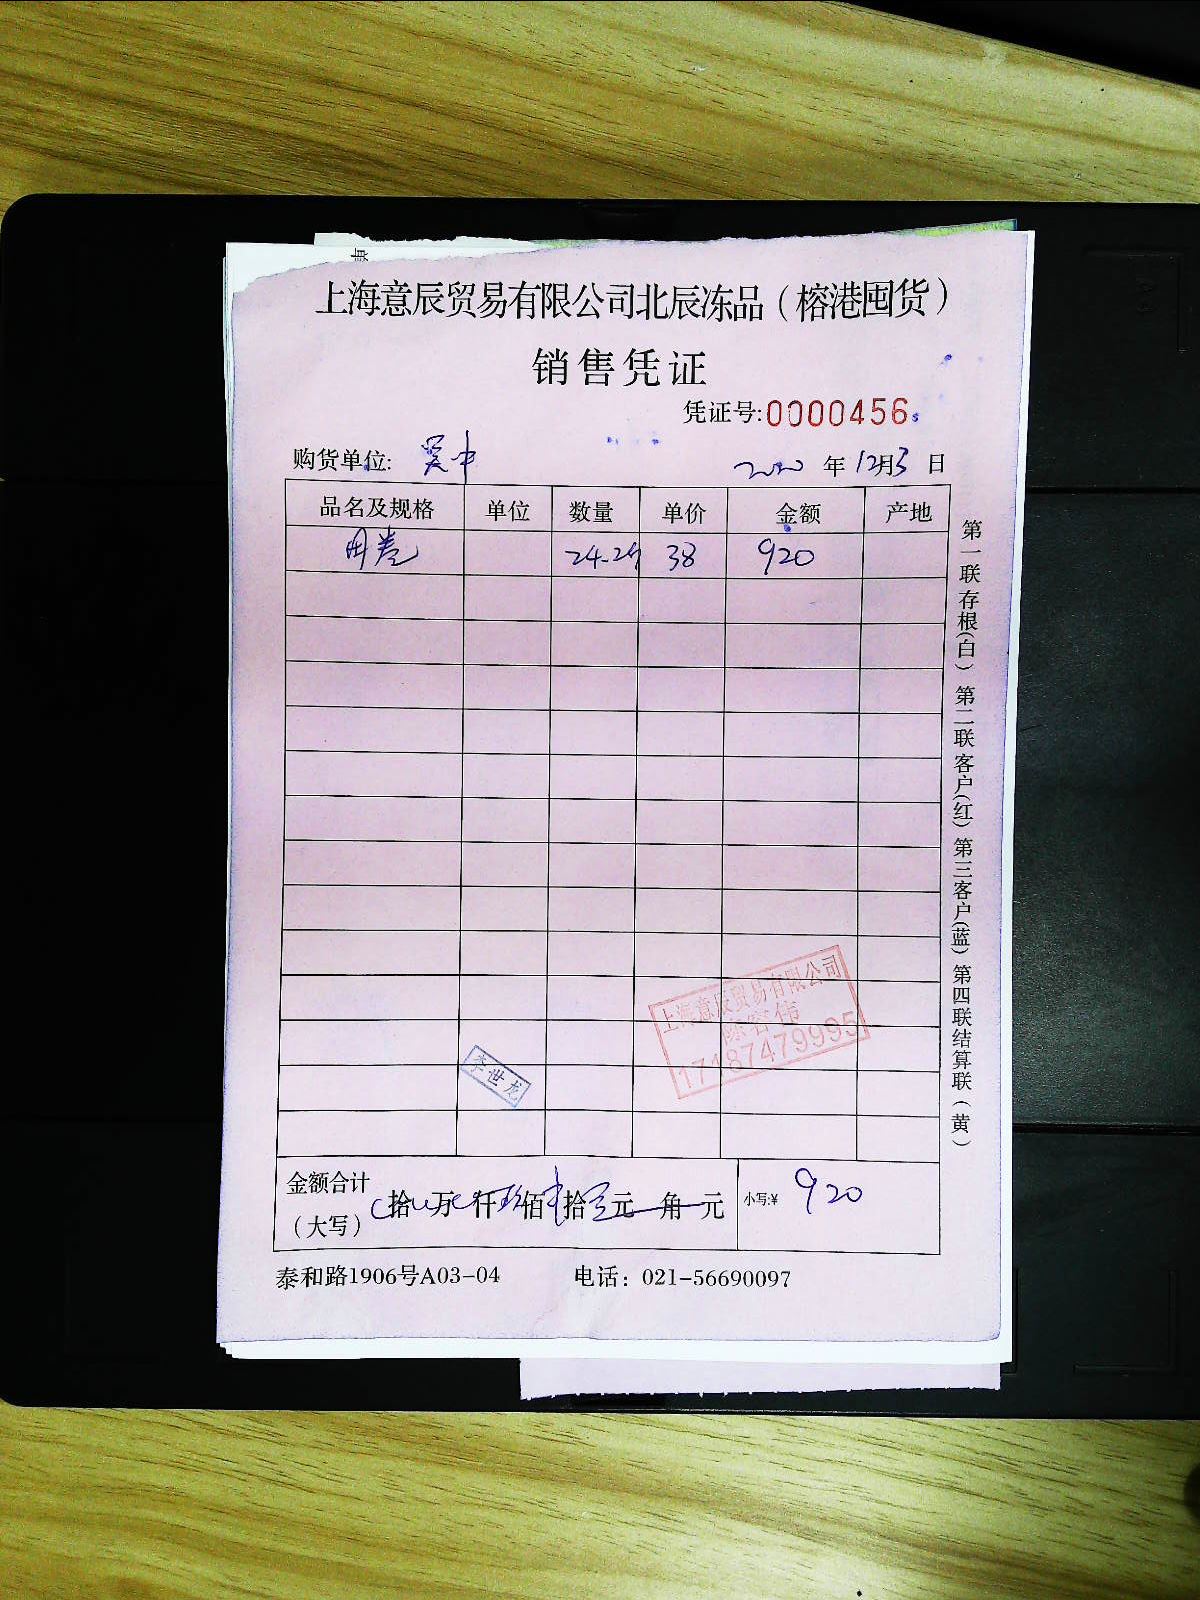 上海意辰贸易有限公司北辰冻品（榕港囤货）
销售凭证
凭证号:0000456
购货单位: 吴中 2020 年 12月3 日
品名及规格 单位 数量 单价 金额 产地
38 920
第一联存根(白) 第二联客户(红) 第三客户(蓝) 第四联结算联(黄)
上海意辰贸易有限公司
陈容伟
17187479995
李世龙
金额合计
（大写） 拾 万 仟 玖佰 拾 元 角 元 小写:¥ 920
泰和路1906号A03-04 电话：021-56690097